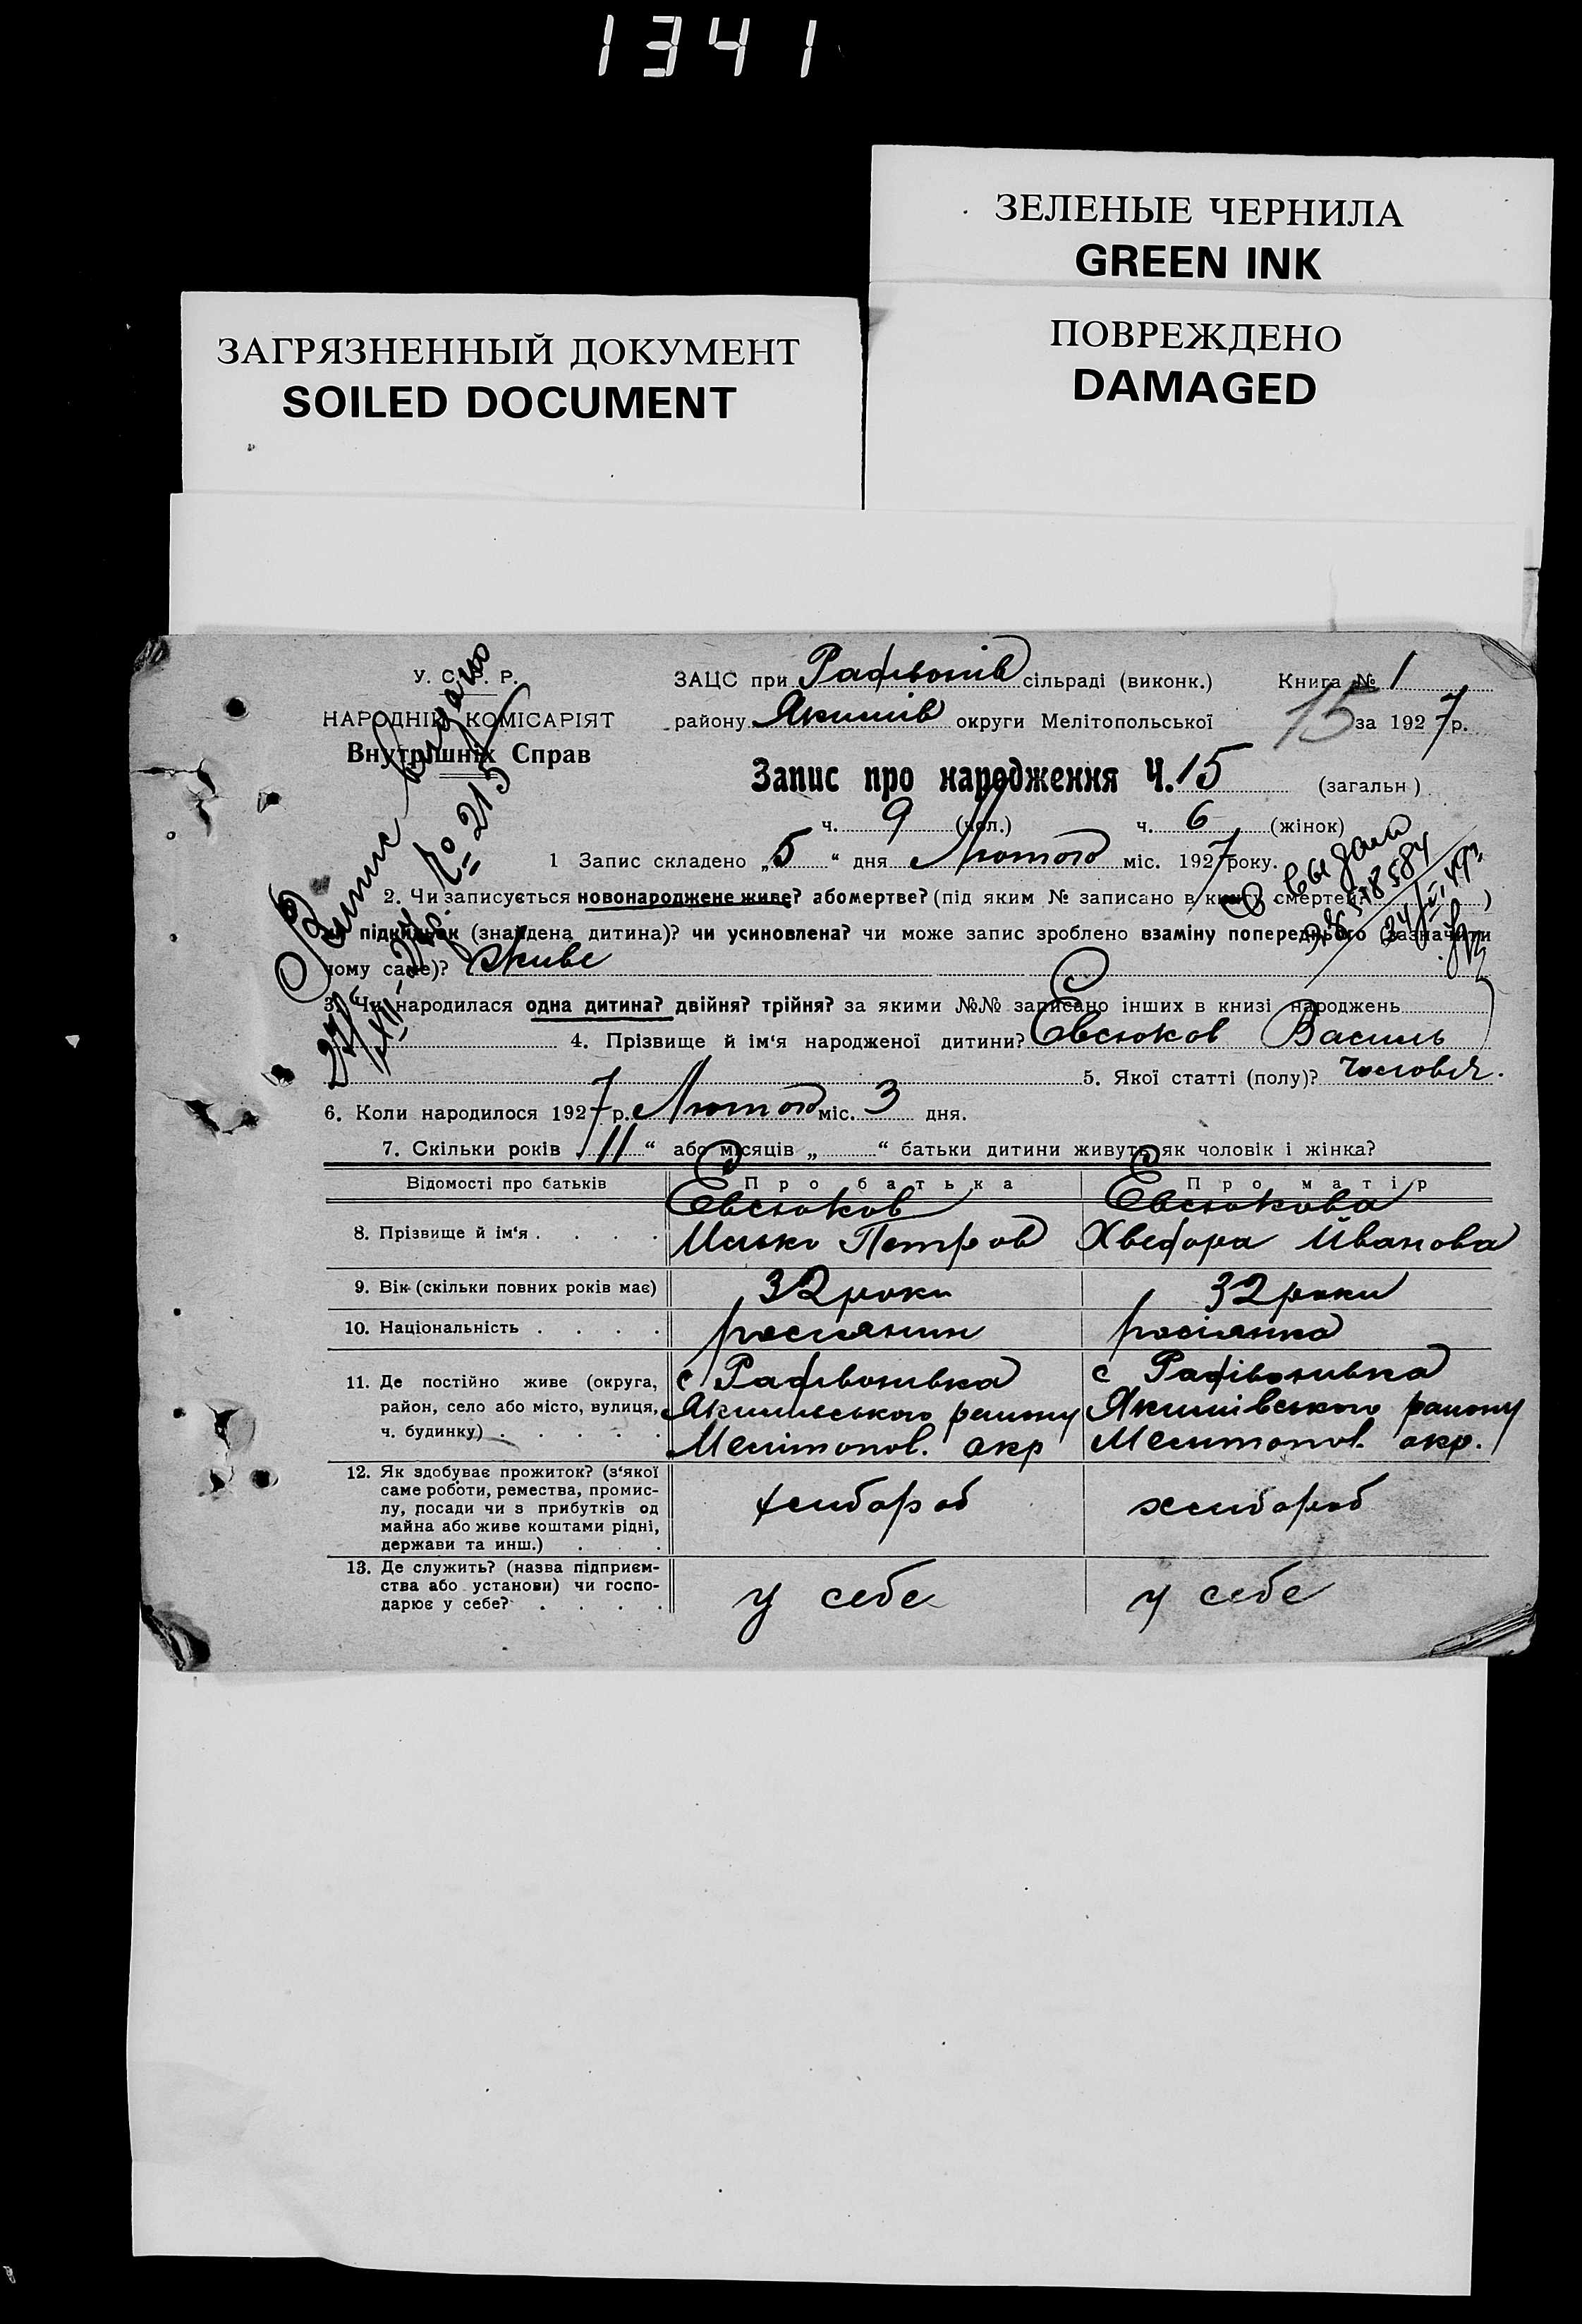 1341
ЗЕЛЕНЫЕ ЧЕРНИЛА
GREEN INK
ЗАГРЯЗНЕННЫЙ ДОКУМЕНТ
SOILED DOCUMENT
ПОВРЕЖДЕНО
DAMAGED
У. С. Р. Р.
НАРОДНІЙ КОМІСАРІЯТ
Внутрішніх Справ
Витис видано
№ 215
ЗАЦС при Рафівонів сільраді (виконк.) Книга № 1
району Якимів округи Мелітопольської 15 за 1927 р.
Запис про народження Ч. 15 (загальн)
ч. 9 (чол.) ч. 6 (жінок)
1 Запис складено „5“ дня Лютого міс. 1927 року.
выдано
578584
2. Чи записується новонароджене живе? або мертве? (під яким № записано в книгу смертей? )
чи підкидьок (знайдена дитина)? чи усиновлена? чи може запис зроблено взаміну попереднього (зазначити
чому саме)? живе
3. Чи народилася одна дитина? двійня? трійня? за якими №№ записано інших в книзі народжень
4. Прізвище й ім‘я народженої дитини? Евсюков Василь
5. Якої статті (полу)? чоловіч.
6. Коли народилося 1927 р. Лютого міс. 3 дня.
7. Скільки років „11“ або місяців „ “ батьки дитини живуть як чоловік і жінка?
Відомості про батьків Про батька Про матір
8. Прізвище й ім‘я . . . . Евсюков Евсюкова
Илько Петров Хведора Иванова
9. Вік (скільки повних років має) 32 роки 32 роки
10. Національність . . . . росіянин росіянка
11. Де постійно живе (округа, с Рафівонивка с Рафівонивка
район, село або місто, вулиця, Якимівського району Якимівського району
ч. будинку) . . . . . Мелітопол. окр Мелитопол. окр.
12. Як здобуває прожиток? (з‘якої
саме роботи, ремества, промис-
лу, посади чи з прибутків од хлибороб хлибороб
майна або живе коштами рідні,
держави та инш.) . . .
13. Де служить? (назва підприєм-
ства або установи) чи госпо- у себе у себе
дарює у себе? . . . .